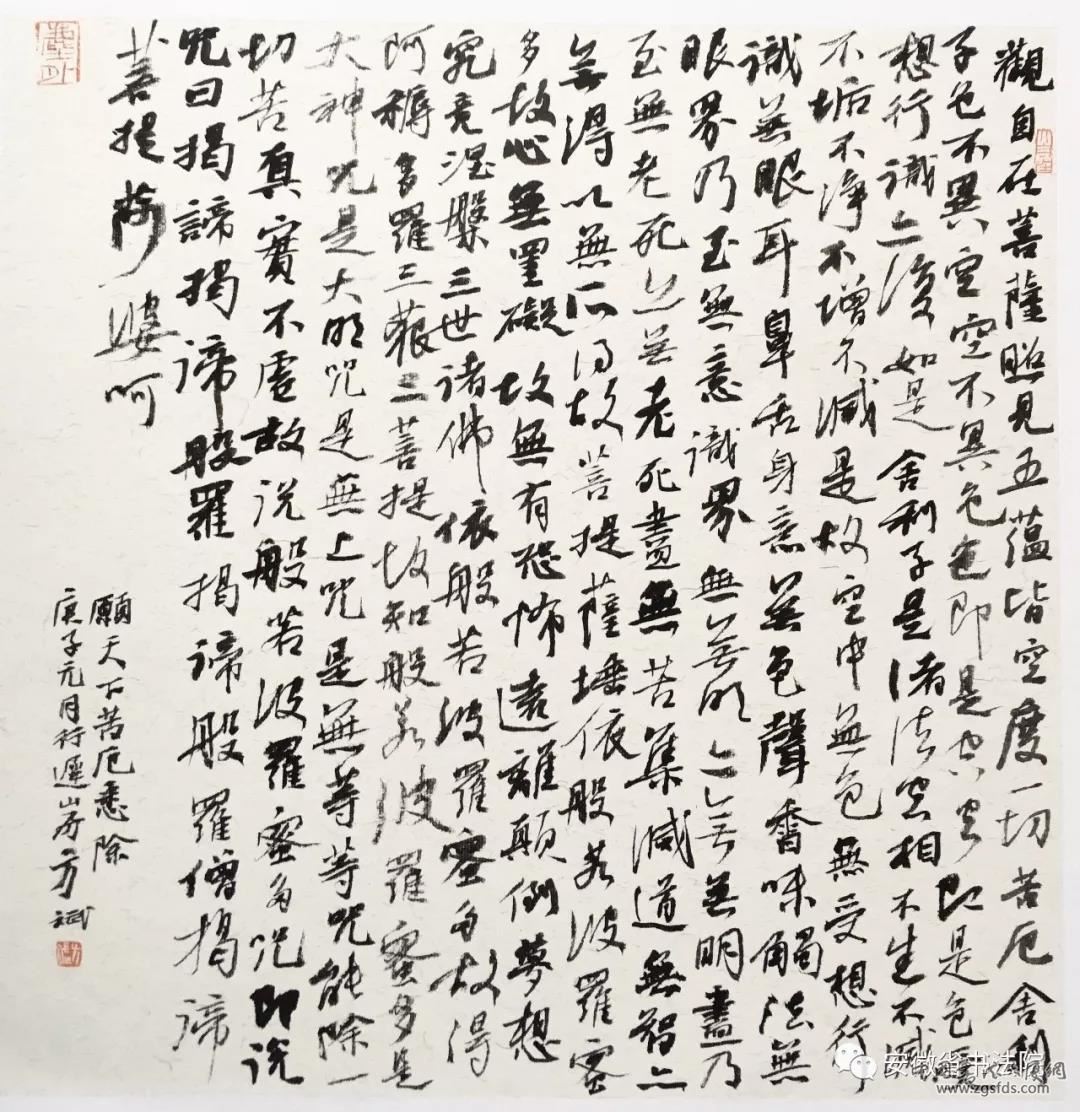 觀自在菩薩照見五蘊皆空度一切苦厄舍利
子色不異空空不異色色即是空空即是色受
想行識亦復如是舍利子是諸法空相不生不滅
不垢不淨不增不減是故空中無色無受想行
識無眼耳鼻舌身意無色聲香味觸法無
眼界乃至無意識界無無明亦無無明盡乃
至無老死亦無老死盡無苦集滅道無智亦
無得以無所得故菩提薩埵依般若波羅蜜
多故心無罣礙故無有恐怖遠離顛倒夢想
究竟涅槃三世諸佛依般若波羅蜜多故得
阿耨多羅三藐三菩提故知般若波羅蜜多是
大神咒是大明咒是無上咒是無等等咒能除一
切苦真實不虛故说般若波羅蜜多咒即说
咒曰揭諦揭諦般羅揭諦般羅僧揭諦
菩提莎婆呵
願天下苦厄悉除
庚子元月行遲山房方斌
安徽省书法院
www.zgsfds.com